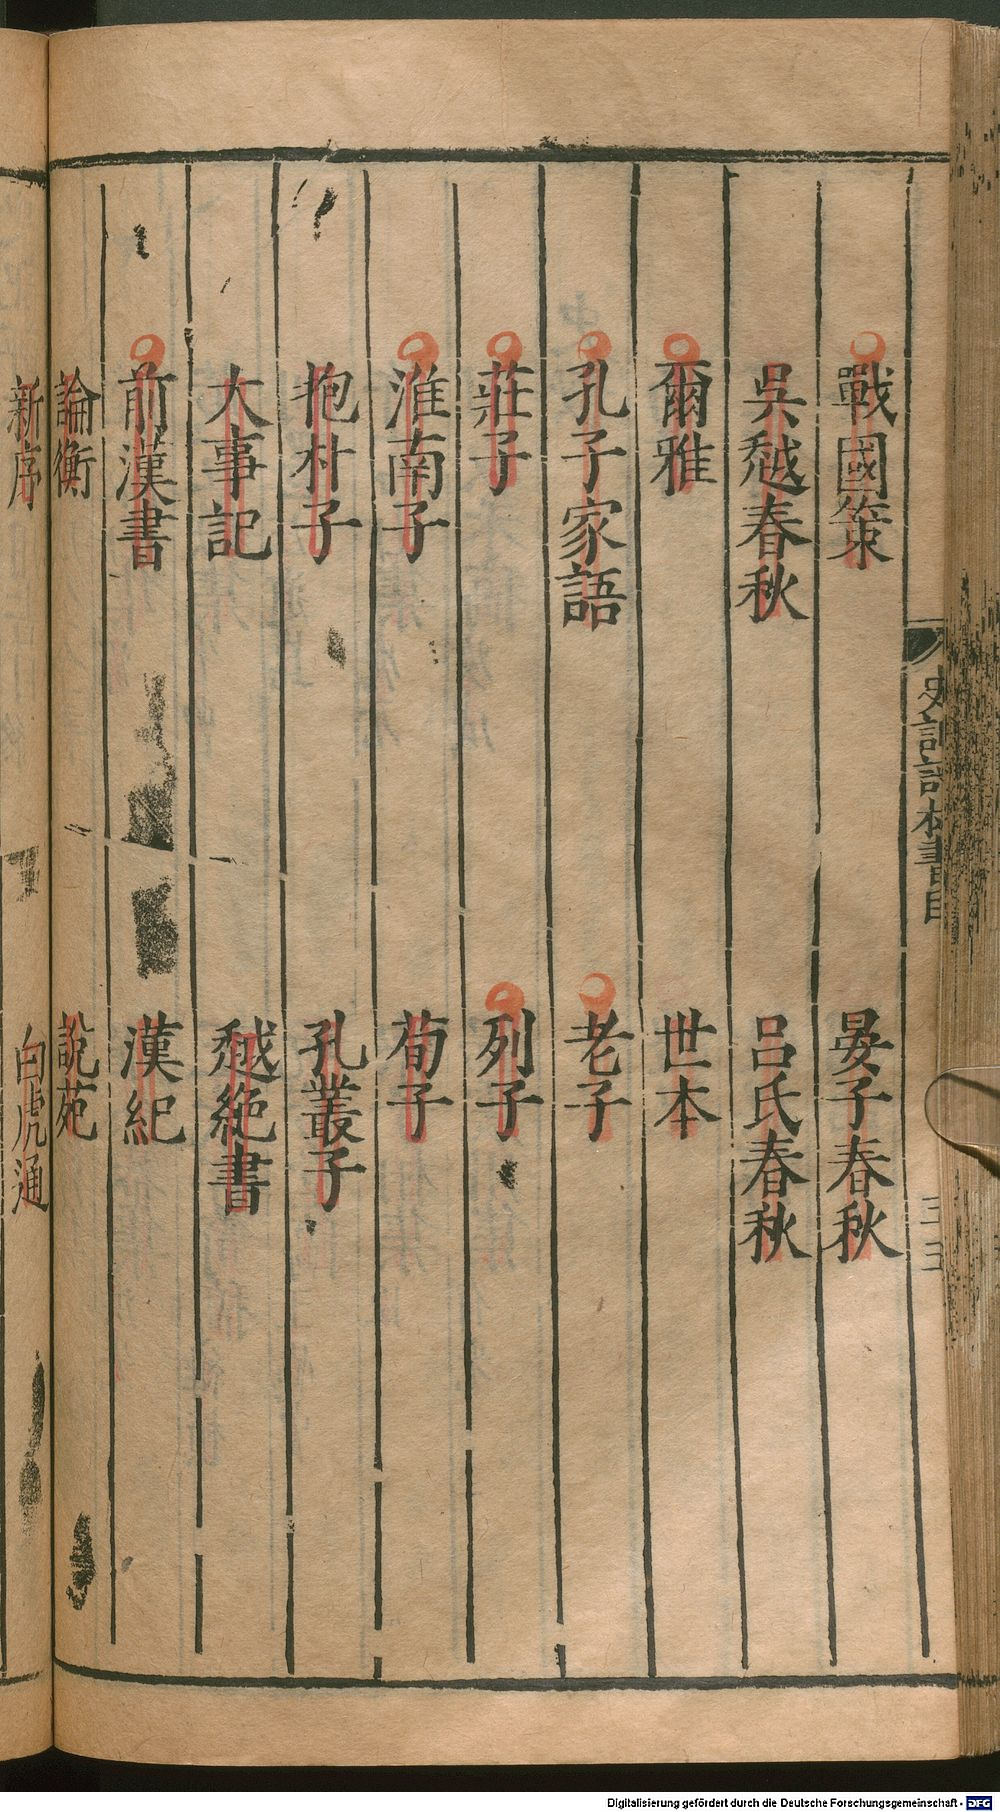 戰國策
晏子春秋
吳越春秋
呂氏春秋
爾雅
世本
孔子家語
老子
莊子
列子
淮南子
荀子
抱朴子
孔叢子
大事記
越絕書
前漢書
漢紀
論衡
說苑
新序
白虎通
Digitalisierung gefördert durch die Deutsche Forschungsgemeinschaft - DFG